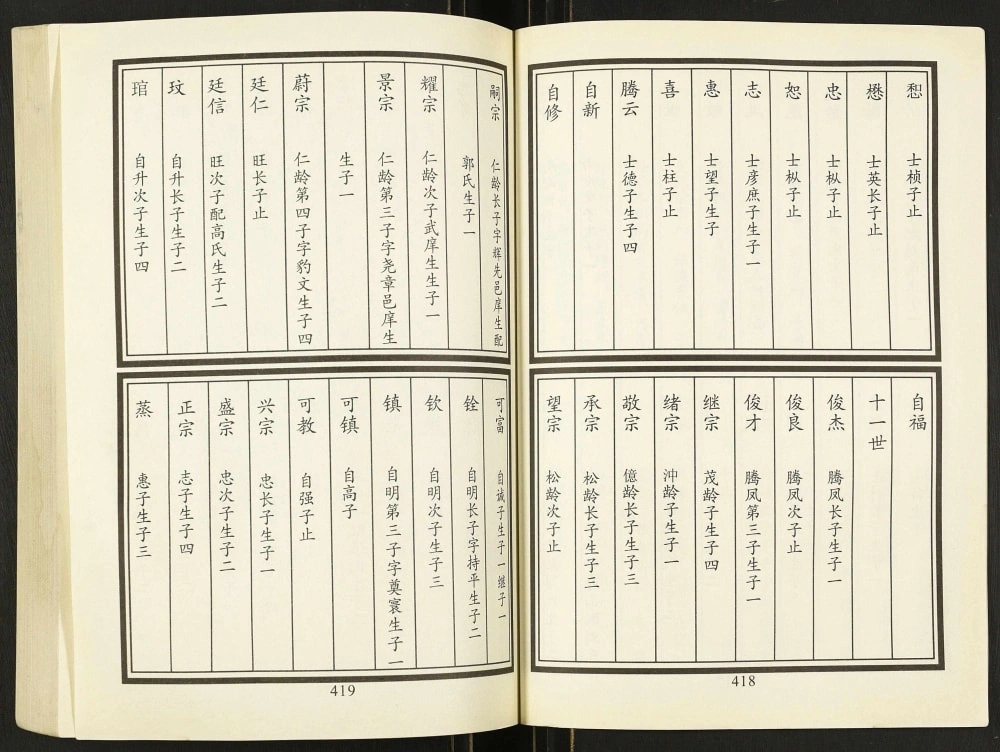 恕 士桢子止
懋 士英长子止
忠 士枞子止
恕 士枞子止
志 士彦庶子生子一
惠 士望子生子
喜 士柱子止
腾云 士德子生子四
自新
自修
自福
十一世
俊杰 腾凤长子生子一
俊良 腾凤次子止
俊才 腾凤第三子生子一
继宗 茂龄子生子四
绪宗 沖龄子生子一
敬宗 億龄长子生子三
承宗 松龄长子生子三
望宗 松龄次子止
418
嗣宗 仁龄长子字辉先邑庠生配
郭氏生子一
耀宗 仁龄次子武庠生生子一
景宗 仁龄第三子字尧章邑庠生
生子一
蔚宗 仁龄第四子字豹文生子四
廷仁 旺长子止
廷信 旺次子配高氏生子二
玟 自升长子生子二
琯 自升次子生子四
可富 自诚子生子一继子一
铨 自明长子字持平生子二
钦 自明次子生子三
镇 自明第三子字奠寰生子一
可镇 自高子
可教 自强子止
兴宗 忠长子生子一
盛宗 忠次子生子二
正宗 志子生子四
蒸 惠子生子三
419